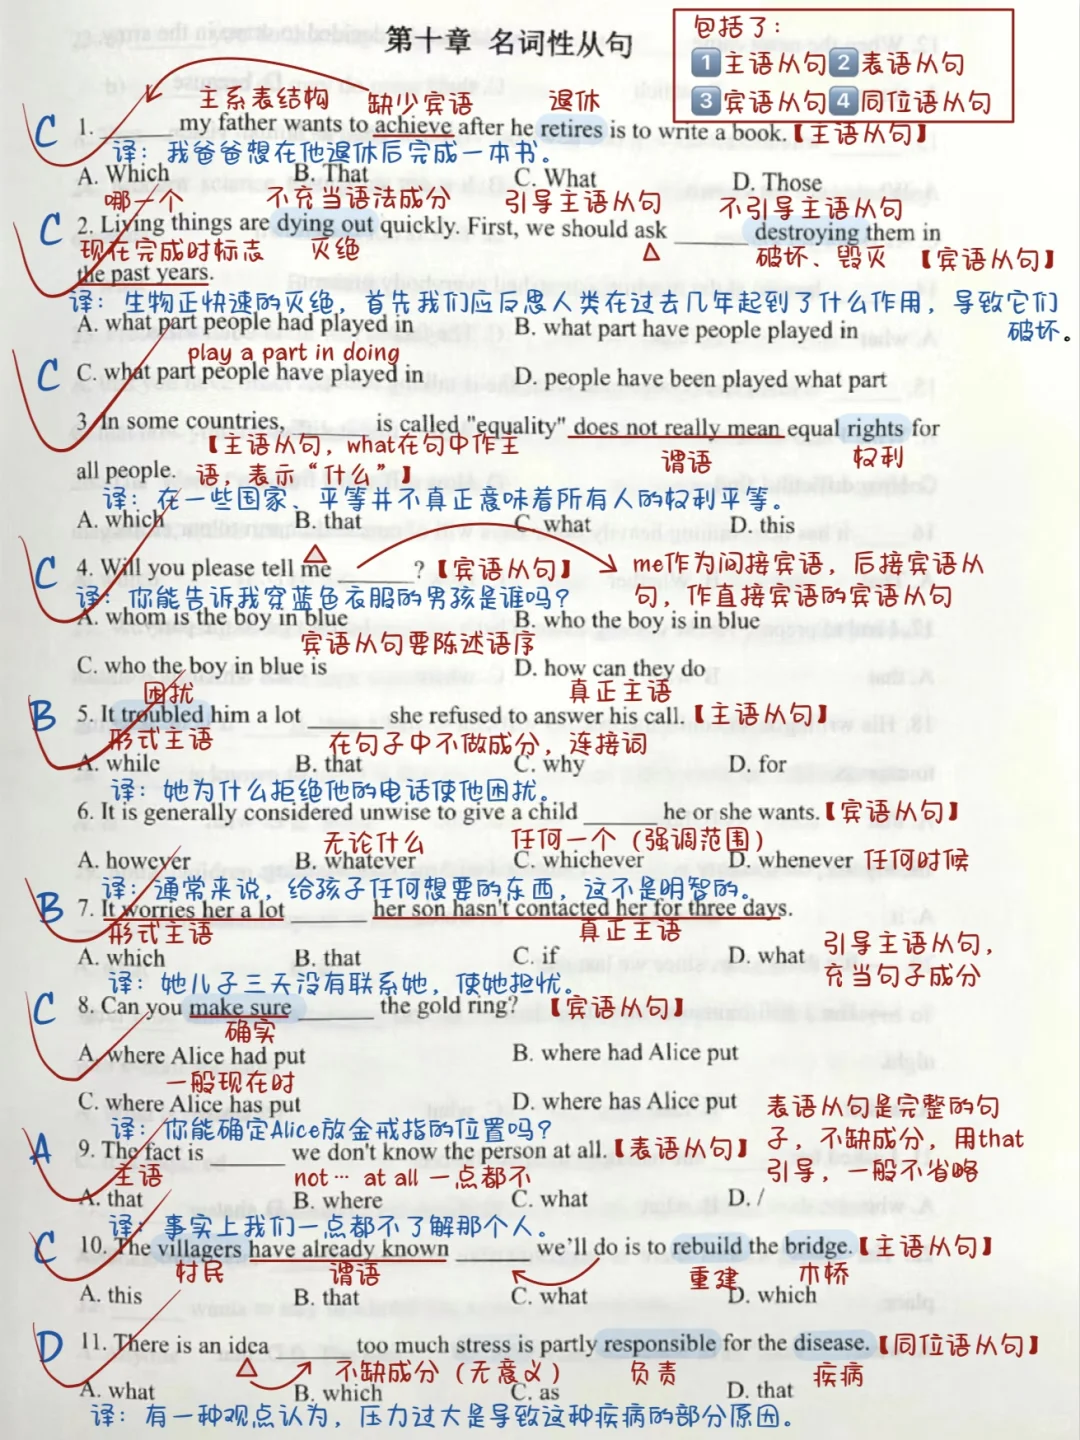 第十章 名词性从句
包括了：
1主语从句2表语从句
3宾语从句4同位语从句
主系表结构 缺少宾语 退休
C 1. ______ my father wants to achieve after he retires is to write a book.【主语从句】
译：我爸爸想在他退休后完成一本书。
A. Which B. That C. What D. Those
哪一个 不充当语法成分 引导主语从句 不引导主语从句
C 2. Living things are dying out quickly. First, we should ask ______ destroying them in
现在完成时标志 灭绝 破坏、毁灭 【宾语从句】
the past years.
译：生物正快速的灭绝，首先我们应反思人类在过去几年起到了什么作用，导致它们
破坏。
A. what part people had played in B. what part have people played in
play a part in doing
C C. what part people have played in D. people have been played what part
3. In some countries, ______ is called "equality" does not really mean equal rights for
【主语从句，what在句中作主 谓语 权利
all people. 语，表示“什么”】
译：在一些国家、平等并不真正意味着所有人的权利平等。
A. which B. that C. what D. this
C 4. Will you please tell me ______?【宾语从句】 me作为间接宾语，后接宾语从
句，作直接宾语的宾语从句
译：你能告诉我穿蓝色衣服的男孩是谁吗？
A. whom is the boy in blue B. who the boy is in blue
宾语从句要陈述语序
C. who the boy in blue is D. how can they do
困扰 真正主语
B 5. It troubled him a lot ______ she refused to answer his call.【主语从句】
形式主语 在句子中不做成分，连接词
A. while B. that C. why D. for
译：她为什么拒绝他的电话使他困扰。
6. It is generally considered unwise to give a child ______ he or she wants.【宾语从句】
无论什么 任何一个（强调范围）
A. however B. whatever C. whichever D. whenever 任何时候
译：通常来说，给孩子任何想要的东西，这不是明智的。
B 7. It worries her a lot ______ her son hasn't contacted her for three days.
形式主语 真正主语
A. which B. that C. if D. what 引导主语从句，
充当句子成分
译：她儿子三天没有联系她，使她担忧。
C 8. Can you make sure ______ the gold ring? 【宾语从句】
确实
A. where Alice had put B. where had Alice put
一般现在时
C. where Alice has put D. where has Alice put
表语从句是完整的句
子，不缺成分，用that
引导，一般不省略
译：你能确定Alice放金戒指的位置吗？
A 9. The fact is ______ we don't know the person at all.【表语从句】
主语 not… at all 一点都不
A. that B. where C. what D. /
译：事实上我们一点都不了解那个人。
C 10. The villagers have already known ______ we'll do is to rebuild the bridge.【主语从句】
村民 谓语 重建 木桥
A. this B. that C. what D. which
D 11. There is an idea ______ too much stress is partly responsible for the disease.【同位语从句】
不缺成分（无意义） 负责 疾病
A. what B. which C. as D. that
译：有一种观点认为，压力过大是导致这种疾病的部分原因。